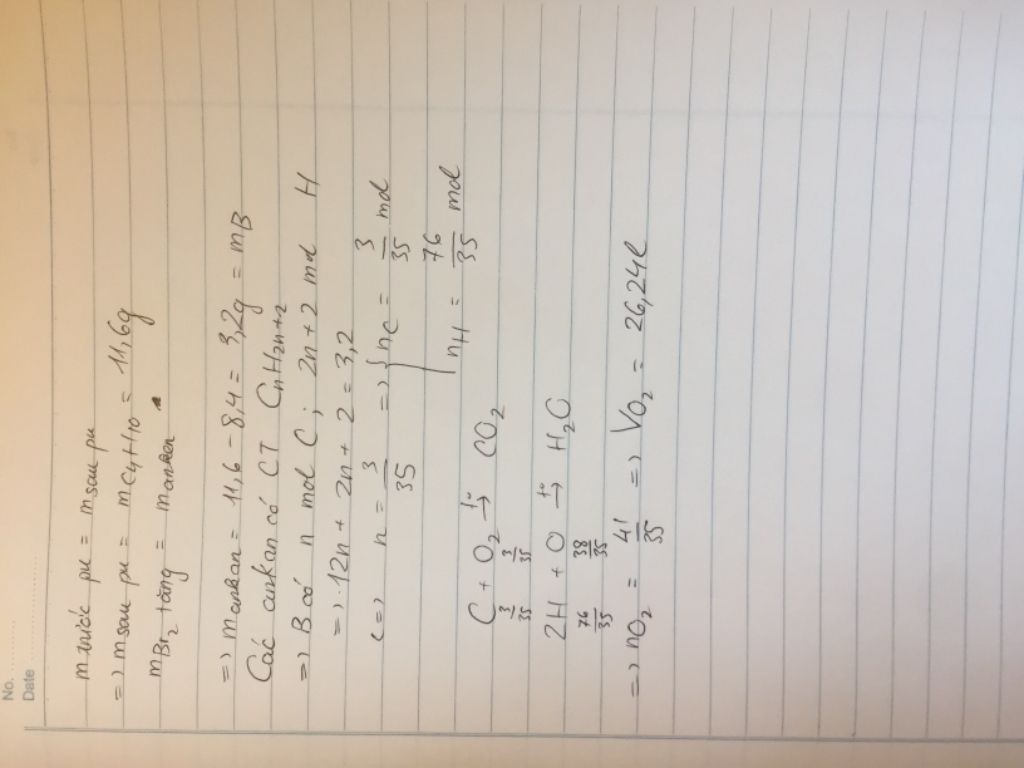 No. ............
Date ............
m trước pu = m sau pu
=> m sau pu = mC4H10 = 11,6g
mBr2 tăng = manken
=> mankan = 11,6 - 8,4 = 3,2g = mB
Các ankan có CT CnH2n+2
=> B có n mol C ; 2n+2 mol H
=> 12n + 2n + 2 = 3,2
<=> n = 3/35 => { nC = 3/35 mol
nH = 76/35 mol
C + O2 t°→ CO2
3/35 3/35
2H + O t°→ H2O
76/35 38/35
=> nO2 = 41/35 => VO2 = 26,24l